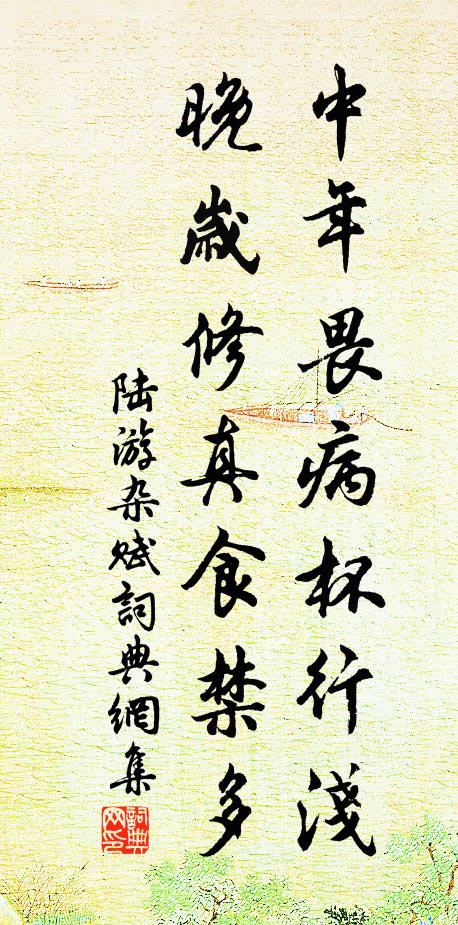 中年畏病杯行淺
晚歲修真食禁多
陆游杂赋詞典網集
詞典網印